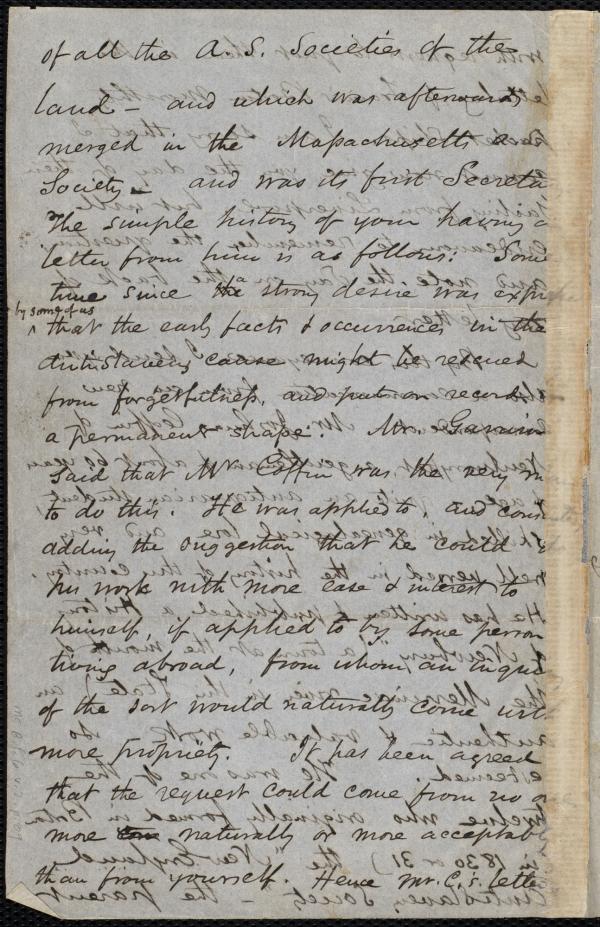 of all the A. S. Societies of the
land – and which was afterwards
merged in the Massachusetts A
Society – and was its first Secreta
The simple history of your having a
letter from him is as follows: Some
time since the strong desire was expre
by some of us
that the early facts & occurrences in the
Antislavery cause might be rescued
from forgetfulness, and put on record
a permanent shape. Mr. Garrison
said that Mr Coffin was the very m
to do this. He was applied to, and cons
adding the suggestion that he could
his work with more ease & interest to
himself, if applied to by some person
living abroad, from whom an inquiry
of the sort would naturally come with
more propriety. It has been agreed
that the request could come from no on
more naturally or more acceptabl
than from yourself. Hence Mr. C.'s letter